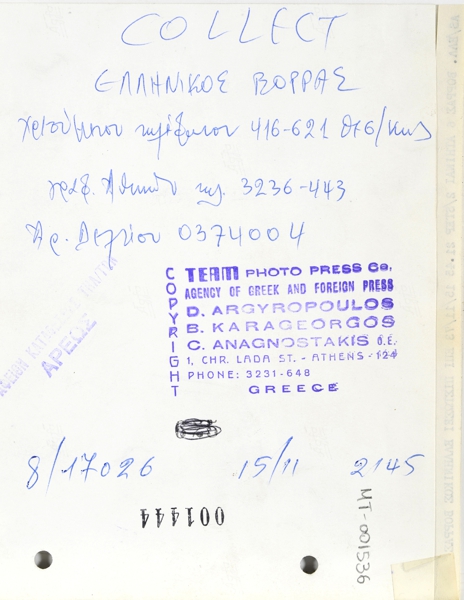 COLLECT
ΕΛΛΗΝΙΚΟΣ ΒΟΡΡΑΣ
416-621 Θεσ/νικη
γραφ. Αθηνών τηλ. 3236-443
Αρ. Δελτίου 0374004
COPYRIGHT
TEAM PHOTO PRESS Co,
AGENCY OF GREEK AND FOREIGN PRESS
D. ARGYROPOULOS
B. KARAGEORGOS
C. ANAGNOSTAKIS O.E.
1, CHR. LADA ST. - ATHENS - 124
PHONE: 3231-648
GREECE
ΑΡΕΘΕ
8/17026 15/11 2145
001444
MT-001536